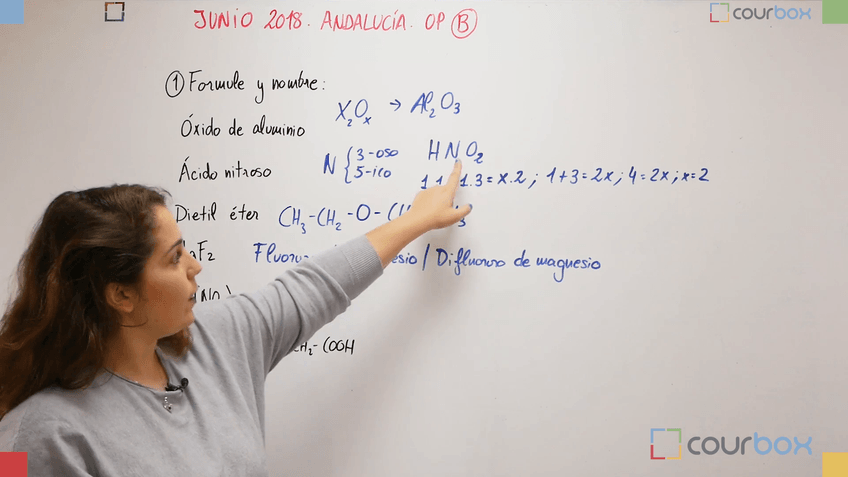 JUNIO 2018. ANDALUCÍA. OP B
courbox
① Formule y nombre:
Óxido de aluminio X₂Oₓ → Al₂O₃
Ácido nitroso N { 3-oso 5-ico HNO₂
1.3=x.2; 1+3=2x; 4=2x; x=2
Dietil éter CH₃-CH₂-O-
F₂ / Difluoruro de magnesio
-COOH
courbox